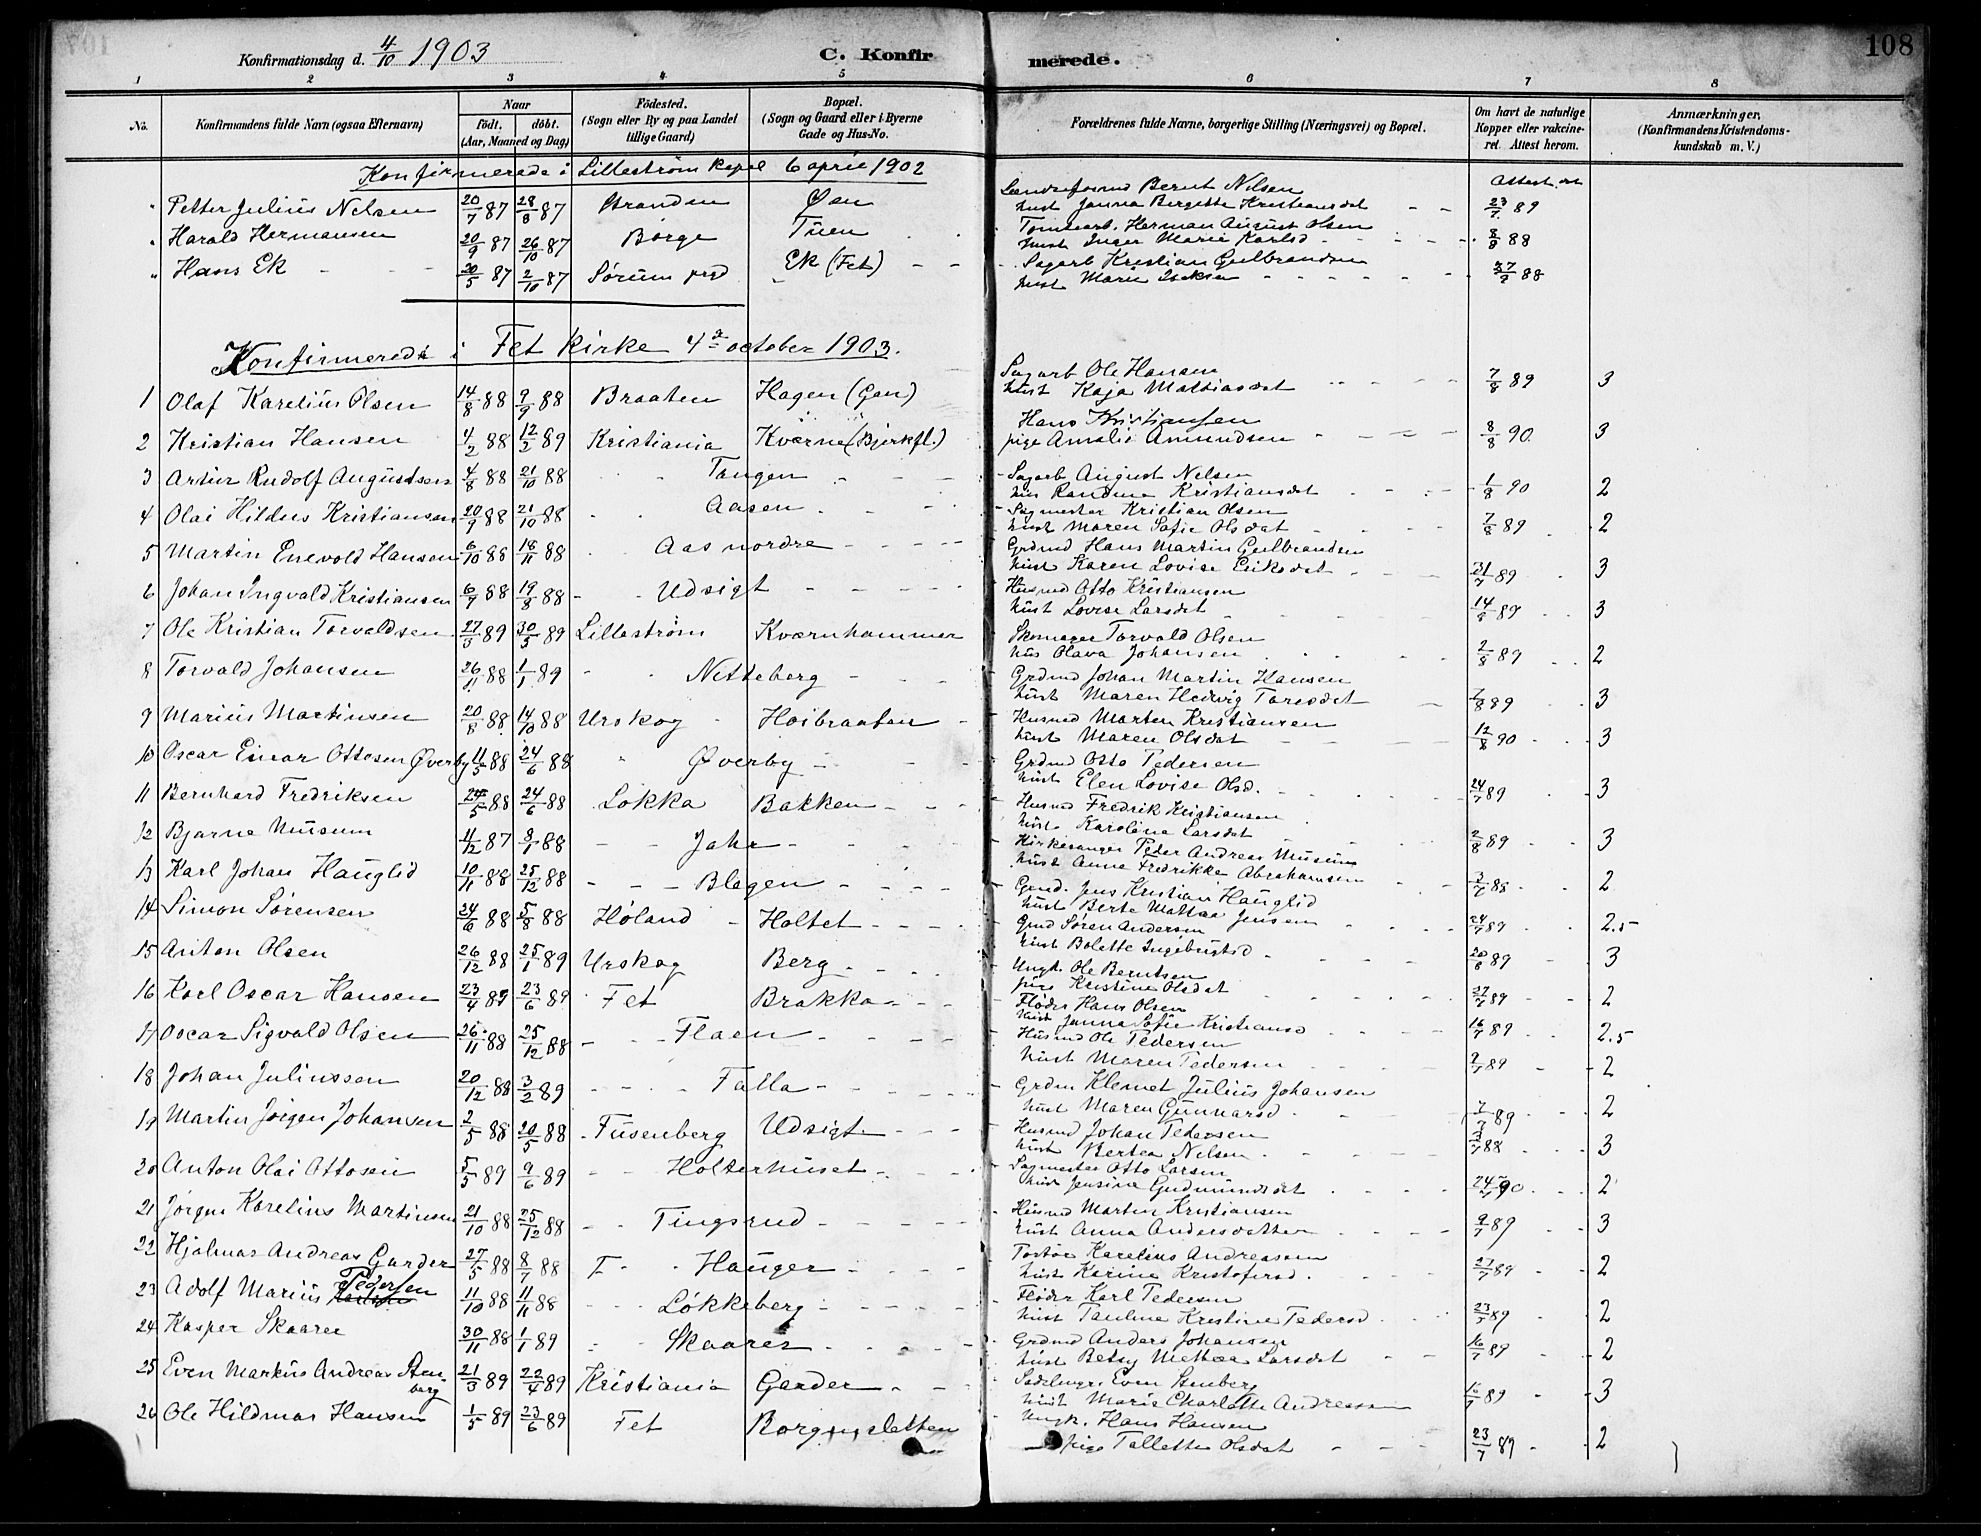 108
Konfirmationsdag d. 4/10 1903
C. Konfirmerede.
1 2 3 4 5 6 7 8
No. Konfirmandens fulde Navn (ogsaa Efternavn) Naar Födt. döbt. (Aar, Maaned og Dag) Födested. (Sogn eller By og paa Landet tillige Gaard) Bopæl. (Sogn og Gaard eller i Byerne Gade og Hus-No. Forældrenes fulde Navne, borgerlige Stilling (Næringsvei) og Bopæl. Om havt de naturlige Kopper eller vakcineret. Attest herom. Anmærkninger, (Konfirmandens Kristendomskundskab m. V.)
Konfirmerede i Lillestrøm kapel 6 april 1902
Petter Julius Nelsen 20/7 87 28/8 87 Stranden Øen Bernt Nilsen
hust Janna Bergette Kristiansdat 23/7 89
Harald Hermansen 20/9 87 26/10 87 Børge Tuen Tomtearb. Herman August Olsen
hust Inger Marie Karlsd 8/9 88
Hans Ek 20/5 87 2/10 87 Sørum prgd Ek (Fet) Sagarb Kristian Gulbrandsen
hust Marie Isaksen 88
Konfirmerede i Fet kirke 4de october 1903.
1 Olaf Karelius Olsen 14/8 88 9/9 88 Braaten Hagen (Gan) Sagarb Ole Hansen
hust Kaja Mathiasdat 7/8 89 3
2 Kristian Hansen 4/2 88 12/2 89 Kristiania Kværne (Bjerkfl.) Hans Kristiansen
pige Amalie Amundsen 8/8 90 3
3 Artur Rudolf Augustsen 4/8 88 21/10 88 Tangen Sagarb August Nelsen
hus Randine Kristiansdat 1/8 90 2
4 Olai Hildus Kristiansen 20/9 88 21/10 88 Aasen Sagmester Kristian Olsen
hust Maren Sofie Olsdat 7/8 89 2
5 Martin Enevold Hansen 6/10 88 18/11 88 Aas nordre Grdmd Hans Martin Gulbrandsen
hust Karen Lovise Eriksdat 31/7 89 3
6 Johan Ingvald Kristiansen 6/7 88 19/8 88 Udsigt Husmd Otto Kristiansen
hust Lovise Larsdat 89 3
7 Ole Kristian Torvaldsen 27/3 89 30/5 89 Lillestrøm Kværnhammer Skomager Torvald Olsen
hus Olava Johansen 2/8 89 2
8 Torvald Johansen 26/11 88 1/1 89 Nitteberg Grdmd Johan Martin Hansen
hust Maren Hedvig Toresdat 89 3
9 Marius Martinsen 20/8 88 14/10 88 Urskog Høibraaten Husmd Marten Kristiansen
hust Maren Olsdat 12/8 90 3
10 Oscar Einar Ottosen Øverby 11/5 88 24/6 88 Øverby Grdmd Otto Pedersen
hust Elen Lovise Olsd. 24/7 89 3
11 Bernhard Fredriksen 24/5 88 24/6 88 Løkka Bakken Husmd Fredrik Kristiansen
hust Karoline Larsdat 2/8 89 3
12 Bjarne Museum 11/12 87 8/1 88 Jahr Kirkesanger Peder Andreas Museum
hust Anne Fredrikke Abrahamsen 88 2
13 Karl Johan Hauglid 10/11 88 25/12 88 Blegen Grmd. Jens Kristian Hauglid
hust Berte Mathea Jensen 24/7 89 2.5
14 Simon Sørensen 24/6 88 5/8 88 Høland Holtet Grmd Søren Andersen
hust Bolette Ingeburtsd 20/8 89 3
15 Anton Olsen 26/12 88 25/1 89 Urskog Berg Ungk. Ole Berntsen
pige Kristine Olsdat 27/7 89 2
16 Karl Oscar Hansen 23/4 89 23/6 89 Fet Brakka Fløder Hans Olsen
hust Janna Sofie Kristiansd 16/7 89 2.5
17 Oscar Sigvald Olsen 26/11 88 25/12 88 Flaen Husmd Ole Pedersen
hust Maren Pedersen 2/7 89 2
18 Johan Juliussen 20/12 88 3/2 89 Falla Grdm Klemet Julius Johansen
hust Maren Gunnarsd. 89 2
19 Martin Jørgen Johansen 2/5 88 20/5 88 Fusenberg Udsigt Husmd Johan Pedersen
hust Bertea Nelsen 88 3
20 Anton Olai Ottosen 5/5 89 9/6 89 Holterhuset Sagmester Otto Larsen
hust Jensine Gudmundsdat 90 2
21 Jørgen Karelius Martinsen 21/10 88 25/12 88 Tingsrud Husmd Martin Kristiansen
hust Anna Andersdatter 9/7 89 3
22 Hjalmar Andreas Garder 27/5 88 8/7 88 F Hauger Karelius Andreassen
hust Karine Kristofersd. 27/7 89 2
23 Adolf Marius Pedersen 11/10 88 11/11 88 Løkkeberg Fløder Karl Pedersen
hust Pauline Kristine Pedersd 89 2
24 Kasper Skaarer 30/11 88 1/1 89 Skaarer Grdmd Anders Johansen
hust Betsy Mathea Larsdat 16/7 89 2
25 Even Markus Andreas Stenberg 21/3 89 22/4 89 Kristiania Garder Sadelmgr. Even Stenberg
hust Marie Charlotte Andreassen 89 3
26 Ole Hildmar Hansen 1/5 89 23/6 89 Fet Borgensletten Ungk. Hans Hansen
pige Tallette Olsdat 23/7 89 2